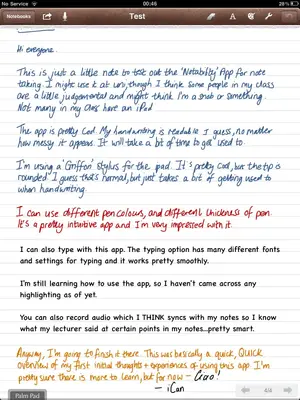 No Service
00:46
28%
Notebooks
Test
Hi everyone.
This is just a little note to test out the 'Notability' App for note
taking. I might use it at uni, though I think some people in my class
are a little judgemental and might think I'm a snob or something.
Not many in my class have an iPad
The app is pretty cool. My handwriting is readable I guess, no matter
how messy it appears. It will take a bit of time to get used to.
I'm using a 'Griffin' stylus for the pad. It's pretty cool, but the tip is
rounded. I guess that's normal, but just takes a bit of getting used to
when handwriting.
I can use different pen colours, and different thickness of pen.
It's a pretty intuitive app and I'm very impressed with it.
I can also type with this app. The typing option has many different fonts
and settings for typing and it works pretty smoothly.
I'm still learning how to use the app, so I haven't came across any
highlighting as of yet.
You can also record audio which I THINK syncs with my notes so I know
what my lecturer said at certain points in my notes...pretty smart.
Anyway, I'm going to finish it there. This was basically a quick, QUICK
overview of my first initial thoughts + experiences of using this app. I'm
pretty sure there is more to learn, but for now – Ciao!
– iCan
Palm Pad
4/4